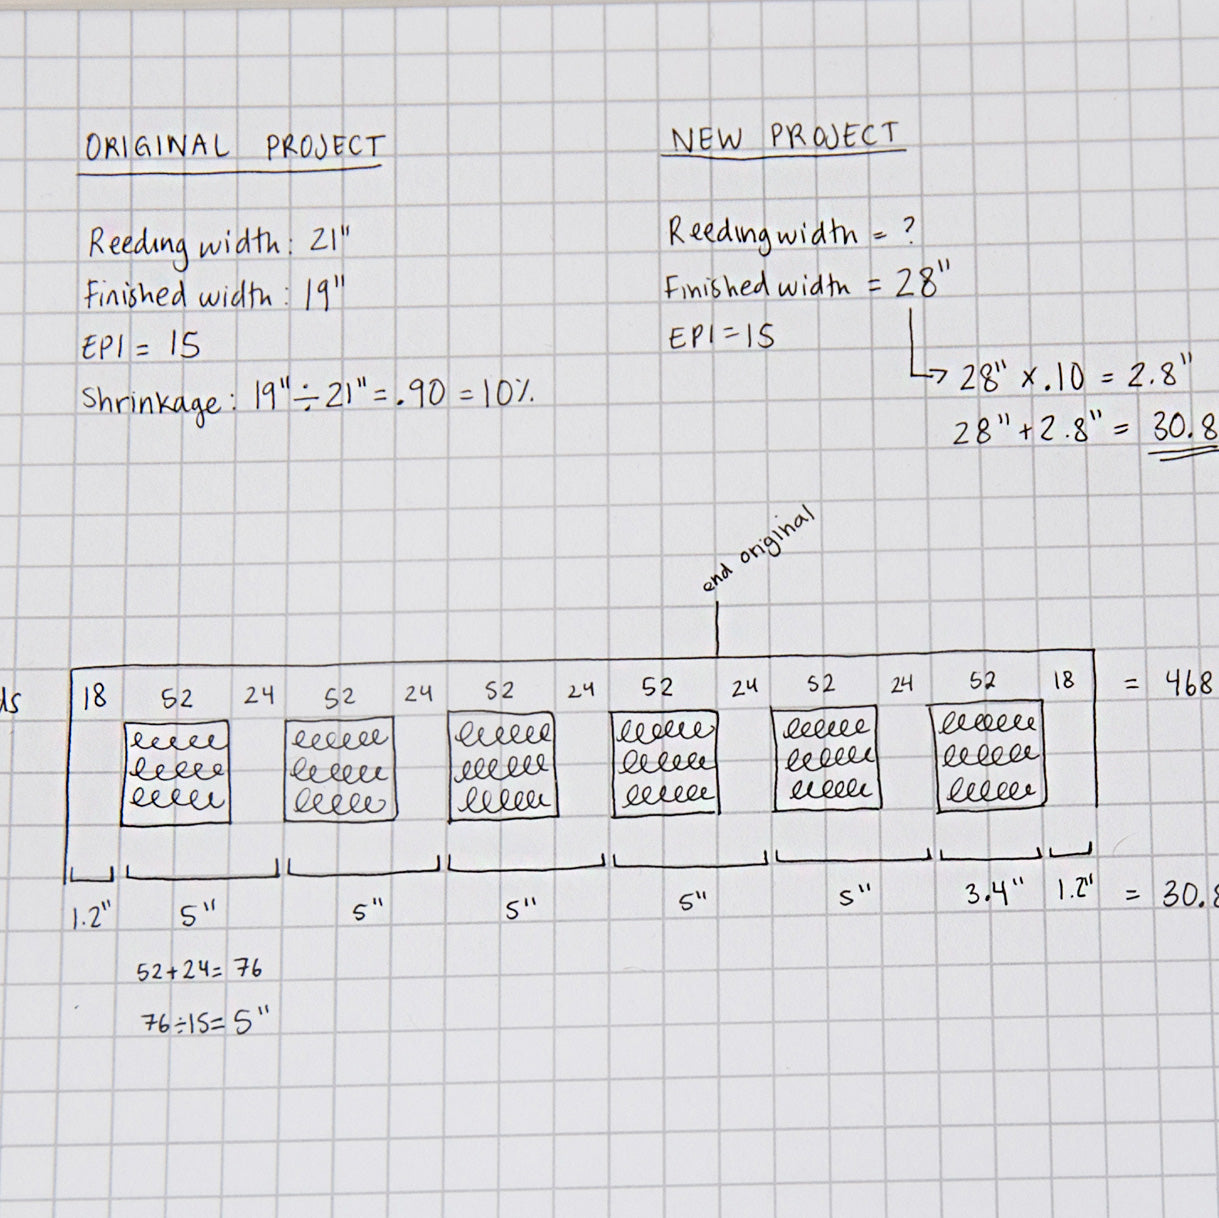 ORIGINAL PROJECT
Reeding width: 21"
Finished width: 19"
EPI = 15
Shrinkage: 19" ÷ 21" = .90 = 10%
NEW PROJECT
Reeding width = ?
Finished width = 28"
EPI = 15
28" x .10 = 2.8"
28" + 2.8" = 30.8
end original
18 52 24 52 24 52 24 52 24 52 24 52 18 = 468
1.2" 5" 5" 5" 5" 5" 3.4" 1.2" = 30.8
52+24= 76
76÷15= 5"